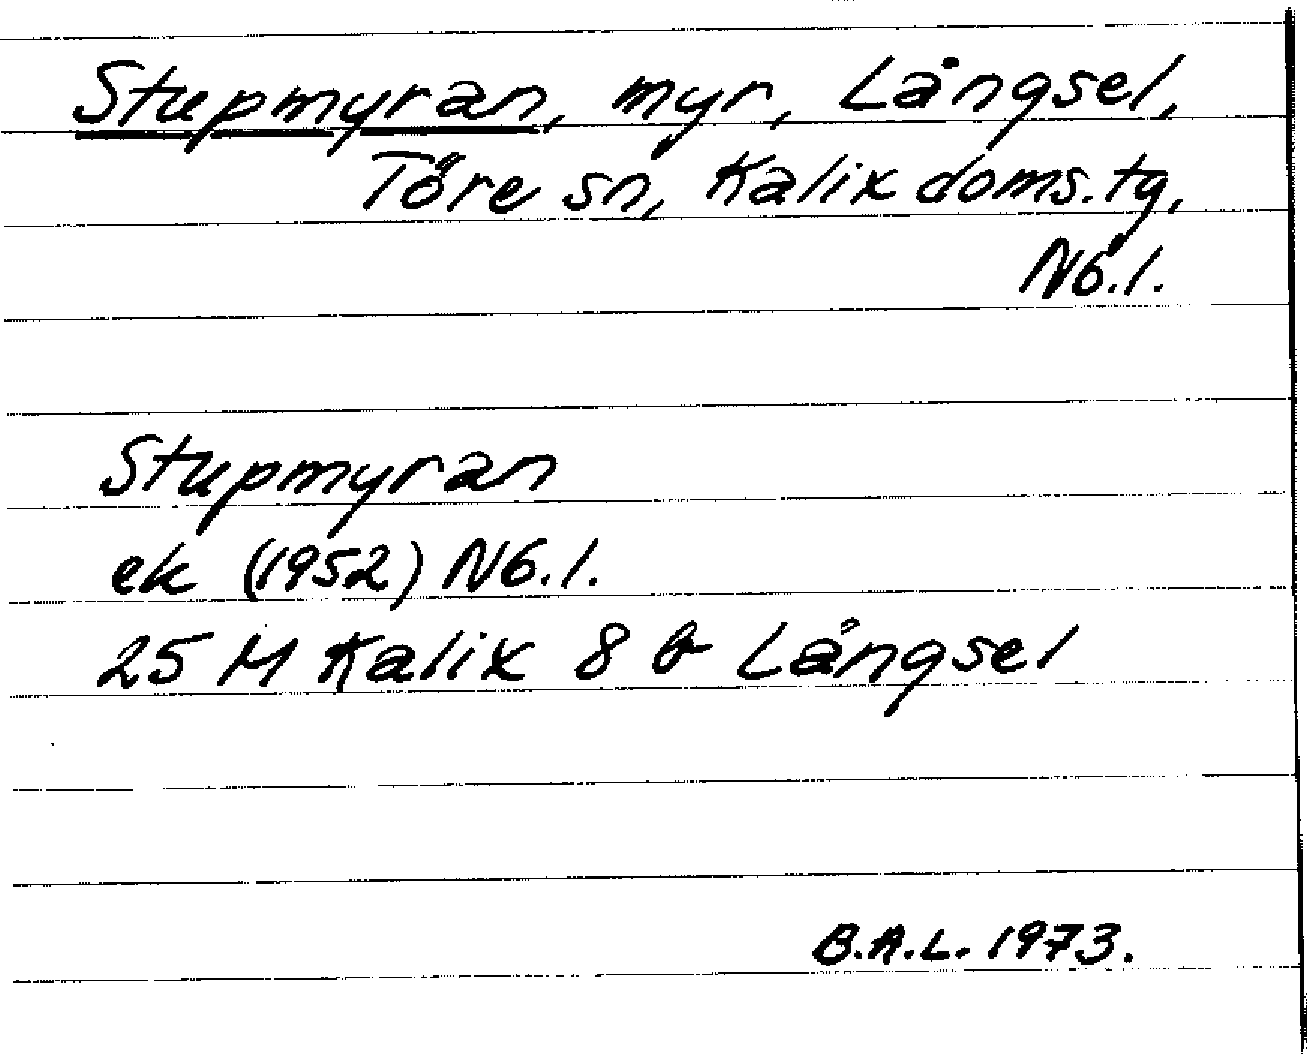 Stupmyran, myr, Långsel,
Töre sn, Kalix doms.tg,
Nb.l.
Stupmyran
ek (1952) Nb.l.
25 M Kalix 8 b Långsel
B.A.L. 1973.